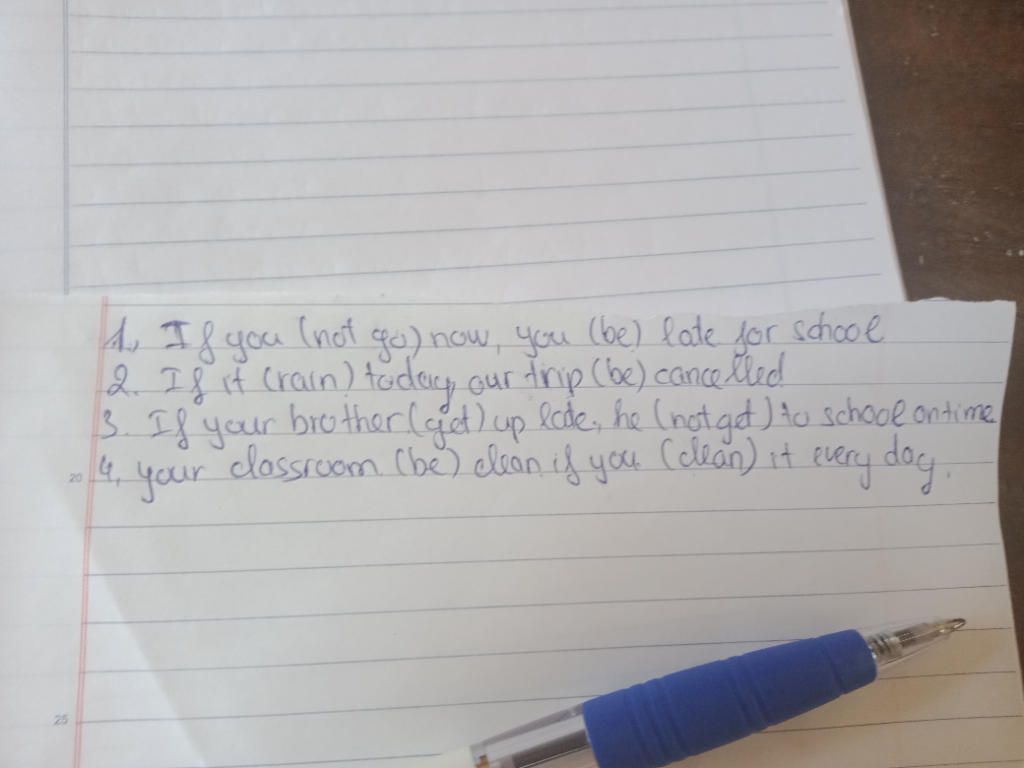 1., If you (not go) now, you (be) late for school
2. If it (rain) today, our trip (be) cancelled
3. If your brother (get) up late, he (not get) to school on time
20
4, your classroom (be) clean if you (clean) it every day.
25